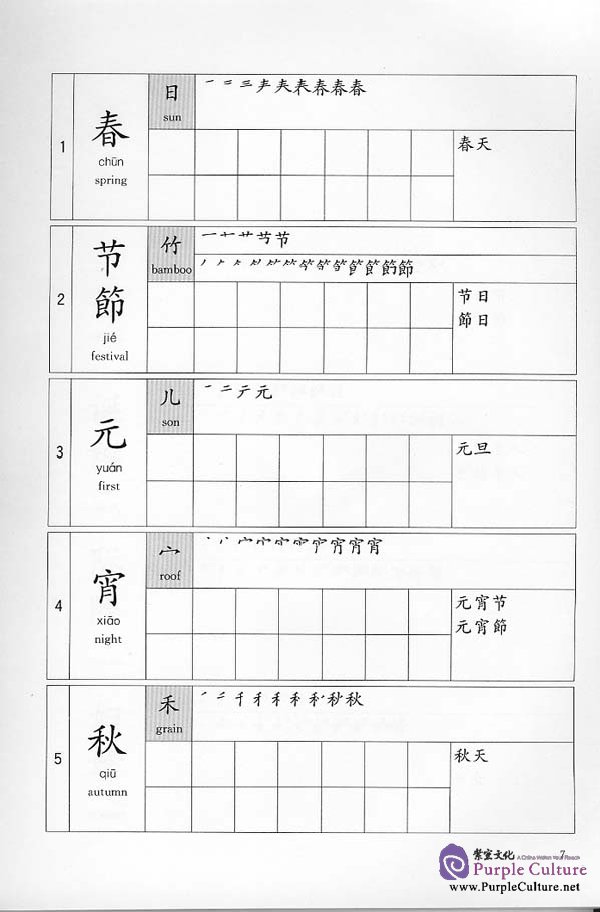 1
春
chūn
spring
日
sun
一 二 三 𡗗 夫 表 春 春 春
春天
2
节
節
jié
festival
竹
bamboo
节
節
节日
節日
3
元
yuán
first
儿
son
一 二 テ 元
元旦
4
宵
xiāo
night
宀
roof
宵
元宵节
元宵節
5
秋
qiū
autumn
禾
grain
秋
秋天
7
紫宸文化 A China Within Your Reach
Purple Culture
www.PurpleCulture.net